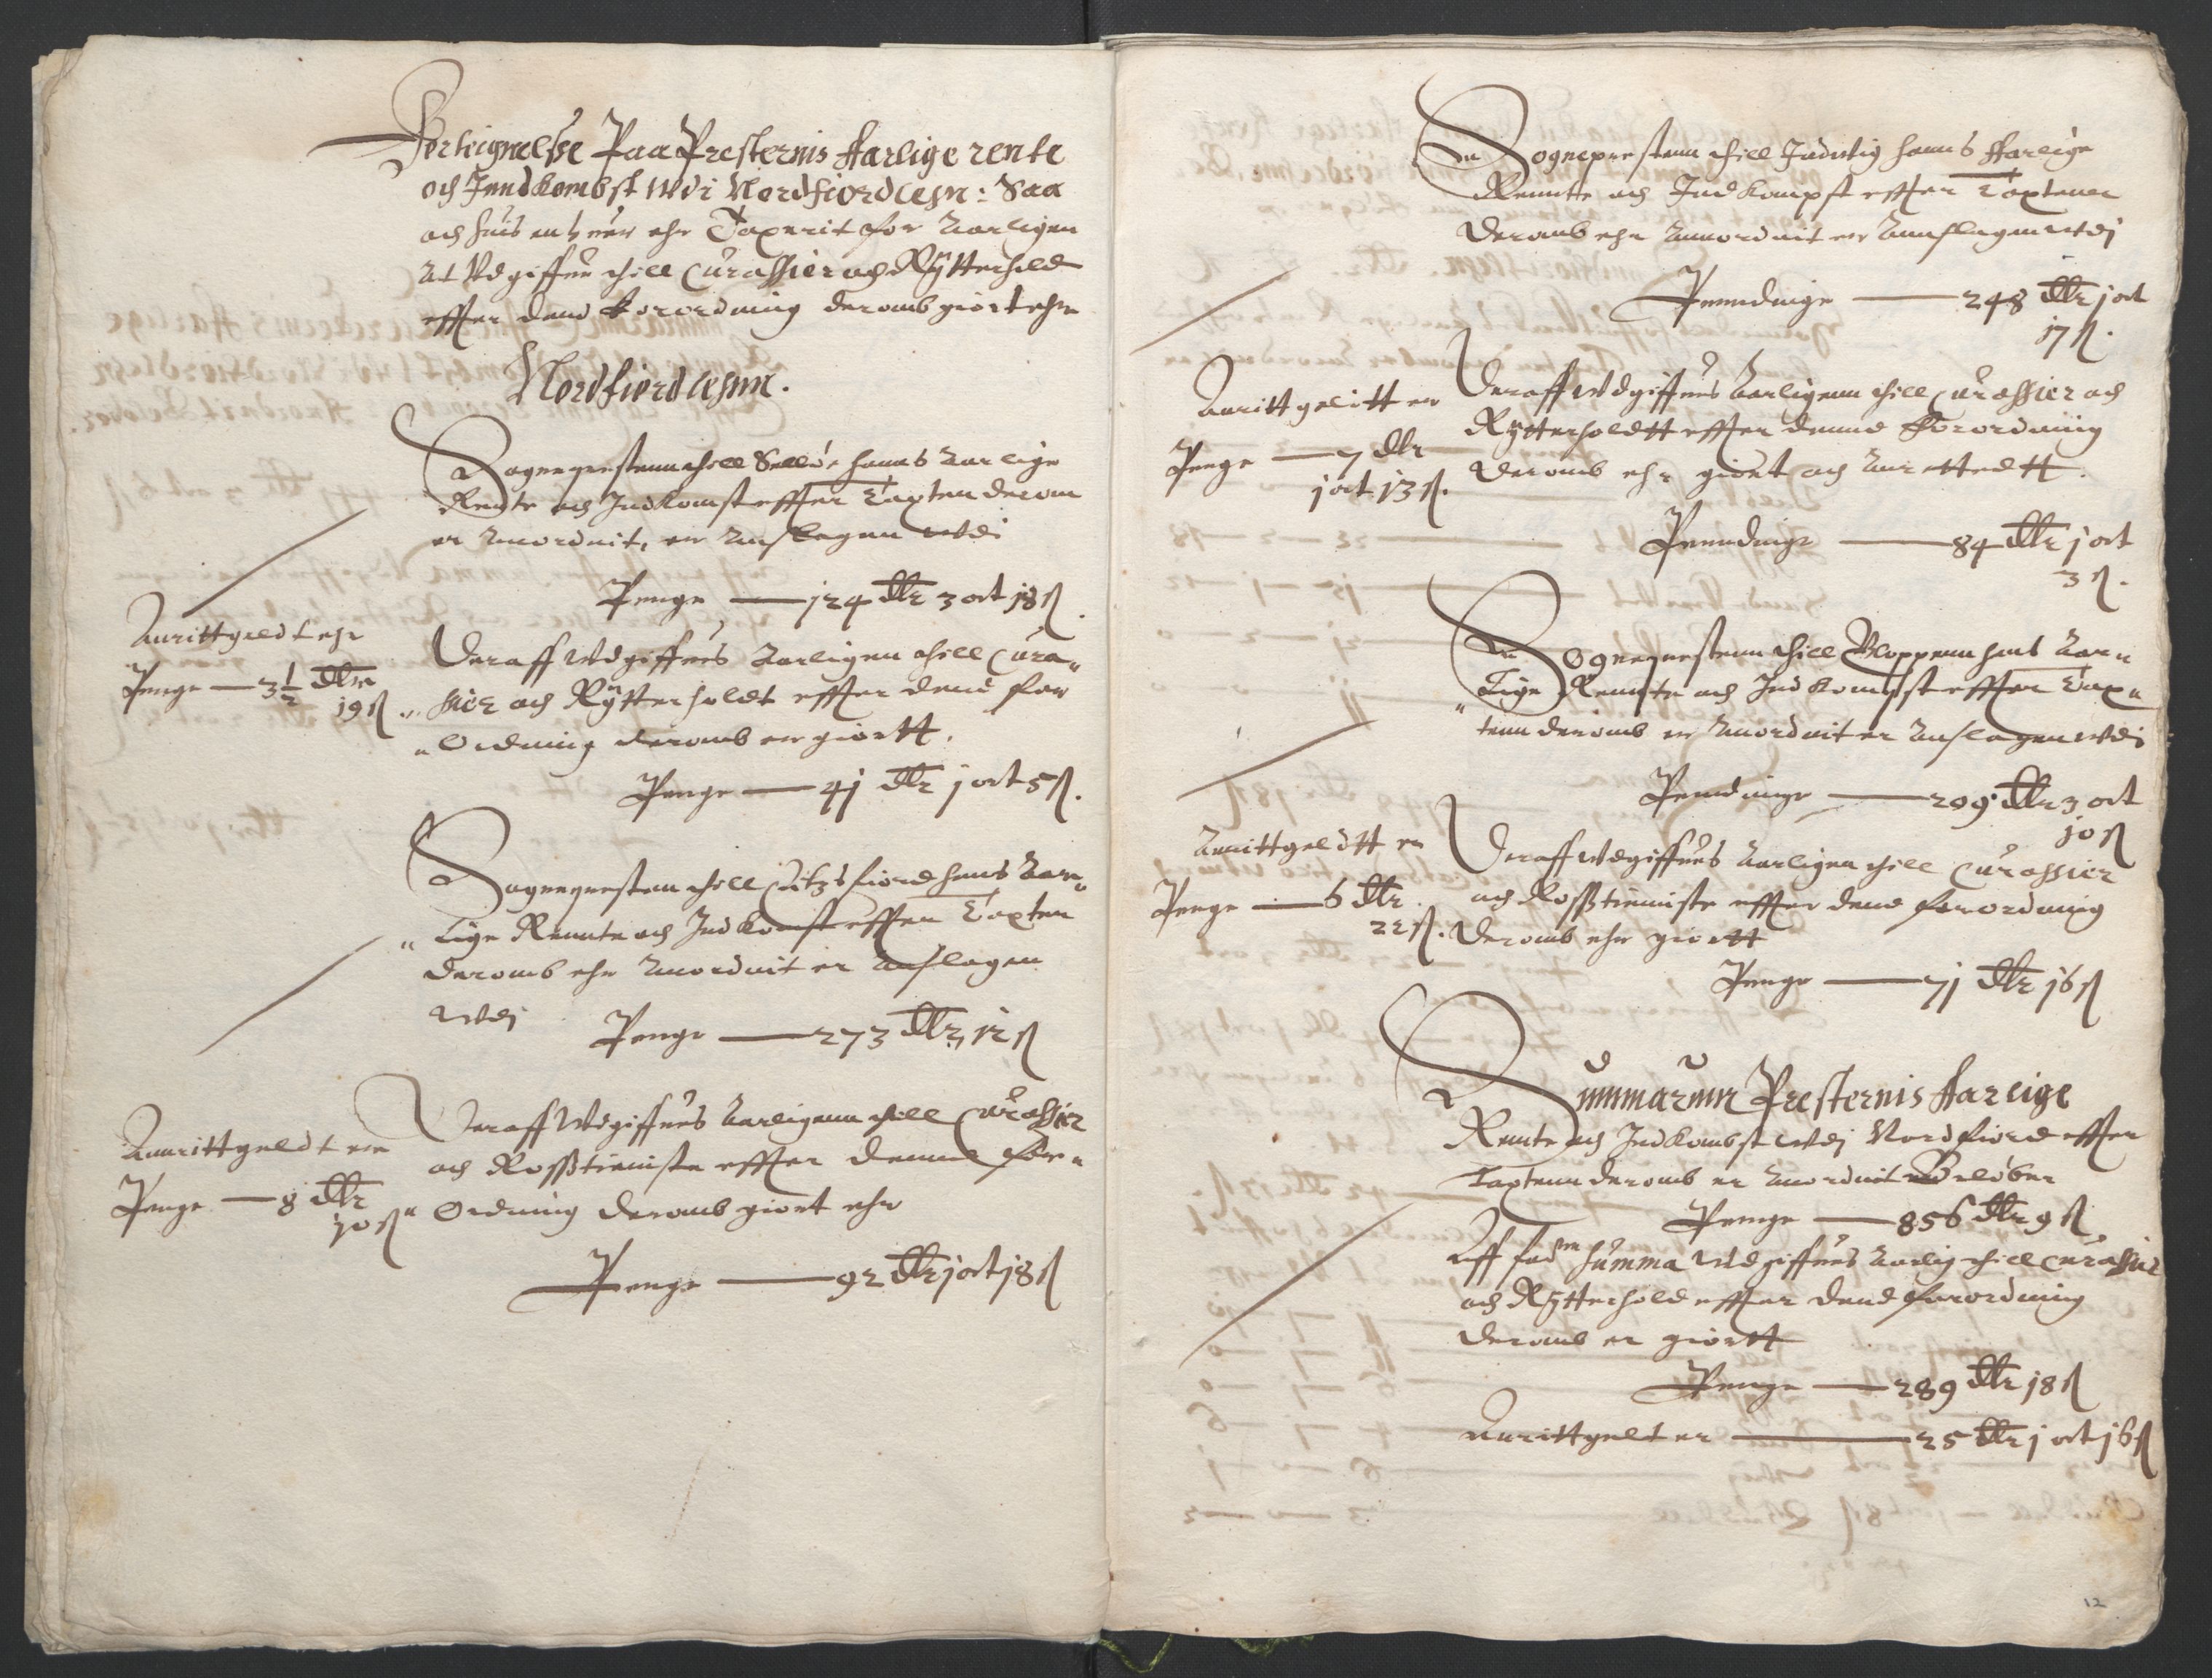 Forteignelsse Paa Presternis Aarlige rente
och Inndkombst Wdi Nordfiordlehn: Saa
och huis enhuer ehr Taxerit for Aarligen
At Vdgiffue thill Curassier och Rÿtterhold
effter dend Forordning deromb giort ehr
Nordfiordlehnn.
Sogneprestenn thill Selløe hanns Aarlige
Rente och Indkomst effter Taxten derom
er Anordnit, er Anslagen wdi
Penge — 124 dlr 3 ort 18 ß
Anrittgeldt ehr
Penge — 3½ dlr
19 ß
Deraff Wdgiffues Aarligen thill Cura„
„ssier och Rÿtterholdt effter dend for
„Ordning deromb er giortt.
Penge — 41 dlr 1 ort 5 ß.
Sognepresten thill Eitzfiord hans Aar„
„Lige Rennte och Indkomst effter Taxten
deromb ehr Anordnit er Anslagen
wdj
Penge — 273 dlr, 12 ß
Anrittgeldt er
Penge — 8 dlr
10 ß
Deraff Wdgiffues Aarligenn thill Curassier
och Rosstieniste effter dennd for„
„Ordning deromb giort ehr
Penge — 92 dlr 1 ort 18 ß
Sogneprestenn thill Indwig hanns Aarlige
Rennte och Indkompst effter Taxtenn
deromb ehr Annordnit er Annslagen wdj
Penndinge — 248 dlr 1 ort
17 ß.
Anritt gelitt er
Penge — 7 dlr
1 ort 13 ß.
Deraff Wdgiffues Aarligenn thill Curassier och
Rÿtterholdtt effter dennd Forordning
deromb ehr giort och Anrettedtt.
Penndinge — 84 dlr 1 ort
3 ß.
Sogneprestenn thill Gloppenn hans Aar„
„Lige Rennte och Indkompst effter Tax„
tenn deromb er Anordnit er Anslagen wdi
Penndinge — 209 dlr 3 ort
10 ß
Anrittgeldtt er
Penge — 6 dlr.
22 ß.
Deraff Wdgiffues Aarligen thill Curassier
och Rosstieniste effter dend forordning
deromb ehr giortt
Penge — 71 dlr 16 ß
Summarum Presternis Aarlige
Rente och Indkombst wdj Nordfiord effter
Taxtenn deromb er Anordnit Beløber
Penge — 856 dlr 9 ß
Aff forne Summa Wdgiffues Aarlig thill Curassier
och Rÿtterhold effter dend forordning
deromb er giortt
Penge — 289 dlr 18 ß
Anrittgelt er — 25 dlr 1 ort 16 ß
12